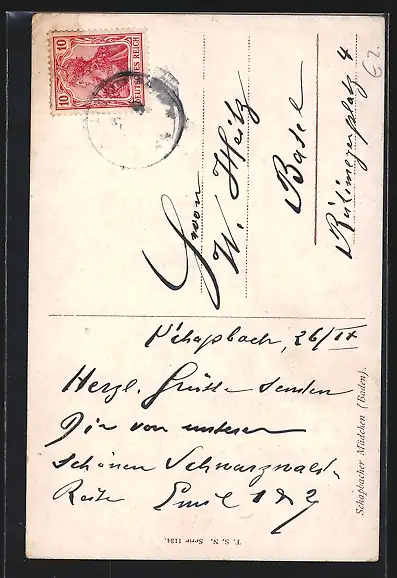 Schapbach, 26/IX
Herzl. Grüsse senden
Dir von unserer
schönen Schwarzwald-
Reise Emil
W. Heitz
Basel
Rütimeyerplatz 4
62.
10 10
DEUTSCHES REICH
Schapbacher Mädchen (Baden).
T. S. N. Serie 1134.